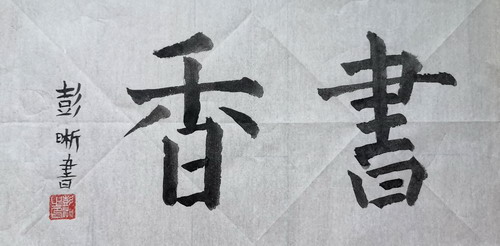 書香
彭晰書